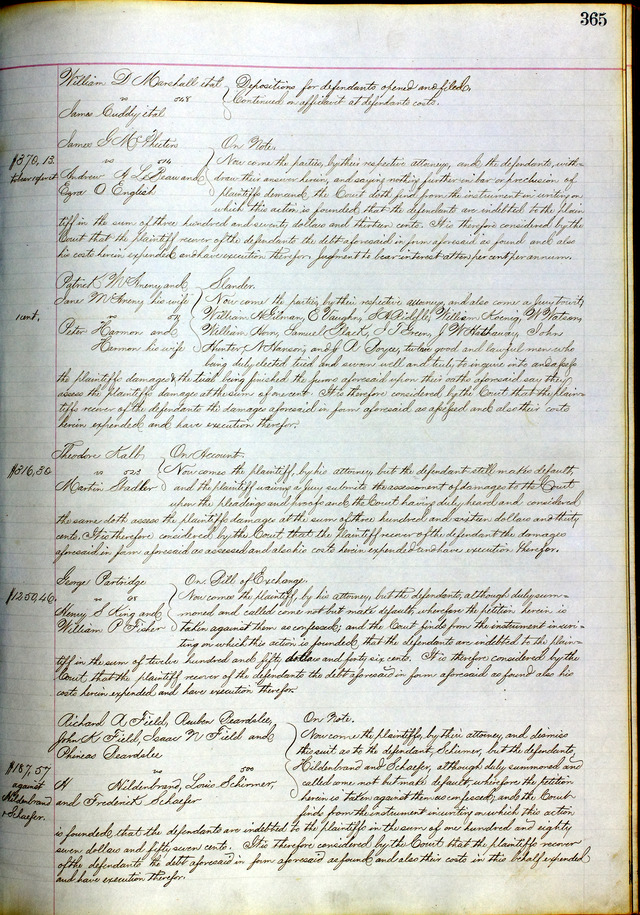 365
William D Marshall et al
vs 548
James Cuddy et al
Depositions for defendants opened and filed,
Continued on affidavit at defendants costs.
James G McPheeters
vs 514
Andrew A LeBeau and
Ezra O English
$370,13.
to bear 10 per ct
On Note.
Now come the parties, by their respective attorneys, and the defendants, with-
draw their answer herein, and saying nothing further in bar or preclusion of
plaintiffs demand, the Court doth find from the instrument in writing on
which this action is founded, that the defendants are indebted to the plain
tiff in the sum of three hundred and seventy dollars and thirteen cents. It is therefore considered by the
Court that the plaintiff recover of the defendants the debt aforesaid in form aforesaid as found and also
his costs herein expended and have execution therefor. Judgment to bear interest at ten per cent per annum.
Patrick McEneny and
Jane McEneny his wife
vs
Peter Harmon and
Harmon his wife
1 cent.
Slander.
Now come the parties, by their respective attorneys, and also come a Jury to wit,
William H Gilman, E Vaughn, William Koenig, W Watson,
William Horn, Samuel Black, J T Green, J W Hathaway, John
Hunter, N Hanson, and J R Joyce, twelve good and lawful men who
being duly elected tried and sworn well and truly to inquire into and assess
the plaintiffs damages & the trial being finished the jurors aforesaid upon their oaths aforesaid say they
assess the plaintiffs damages at the sum of one cent. It is therefore considered by the Court that the plain-
tiffs recover of the defendants the damages aforesaid in form aforesaid as assessed and also their costs
herein expended and have execution therefor.
Theodore Kalb
vs 523
Martin Stadler
$316,30
On Account.
Now comes the plaintiff, by his attorney, but the defendant still makes default,
and the plaintiff waiving a jury submits the assessment of damages to the Court
upon the pleadings and proofs and the Court having duly heard and considered
the same doth assess the plaintiffs damages at the sum of three hundred and sixteen dollars and thirty
cents. It is therefore considered by the Court that the plaintiff recover of the defendant the damages
aforesaid in form aforesaid as assessed and also his costs herein expended and have execution therefor.
George Partridge
vs
Henry S King and
William P Fisher
$1250,46.
On Bill of Exchange.
Now comes the plaintiff, by his attorney, but the defendants, although duly sum-
moned and called come not but make default, wherefore the petition herein is
taken against them as confessed, and the Court finds from the instrument in wri-
ting on which this action is founded, that the defendants are indebted to the plain-
tiff in the sum of twelve hundred and fifty dollars and forty six cents. It is therefore considered by the
Court that the plaintiff recover of the defendants the debt aforesaid in form aforesaid as found also his
costs herein expended and have execution therefor.
Richard A Field, Reuben Beardslee,
John K Field, Isaac N Field and
Phineas Beardslee
vs 500
H Hildenbrand, Louis Schirmer,
and Frederick Schaefer
$187,57
against
Hildenbrand
& Schaefer.
On Note.
Now come the plaintiffs, by their attorney, and dismiss
this suit as to the defendant, Schirmer, but the defendants,
Hildenbrand and Schaefer, although duly summoned and
called come not but make default, wherefore the petition
herein is taken against them as confessed, and the Court
finds from the instrument in writing on which this action
is founded, that the defendants are indebted to the plaintiffs in the sum of one hundred and eighty
seven dollars and fifty seven cents. It is therefore considered by the Court that the plaintiffs recover
of the defendants the debt aforesaid in form aforesaid as found and also their costs in this behalf expended
and have execution therefor.